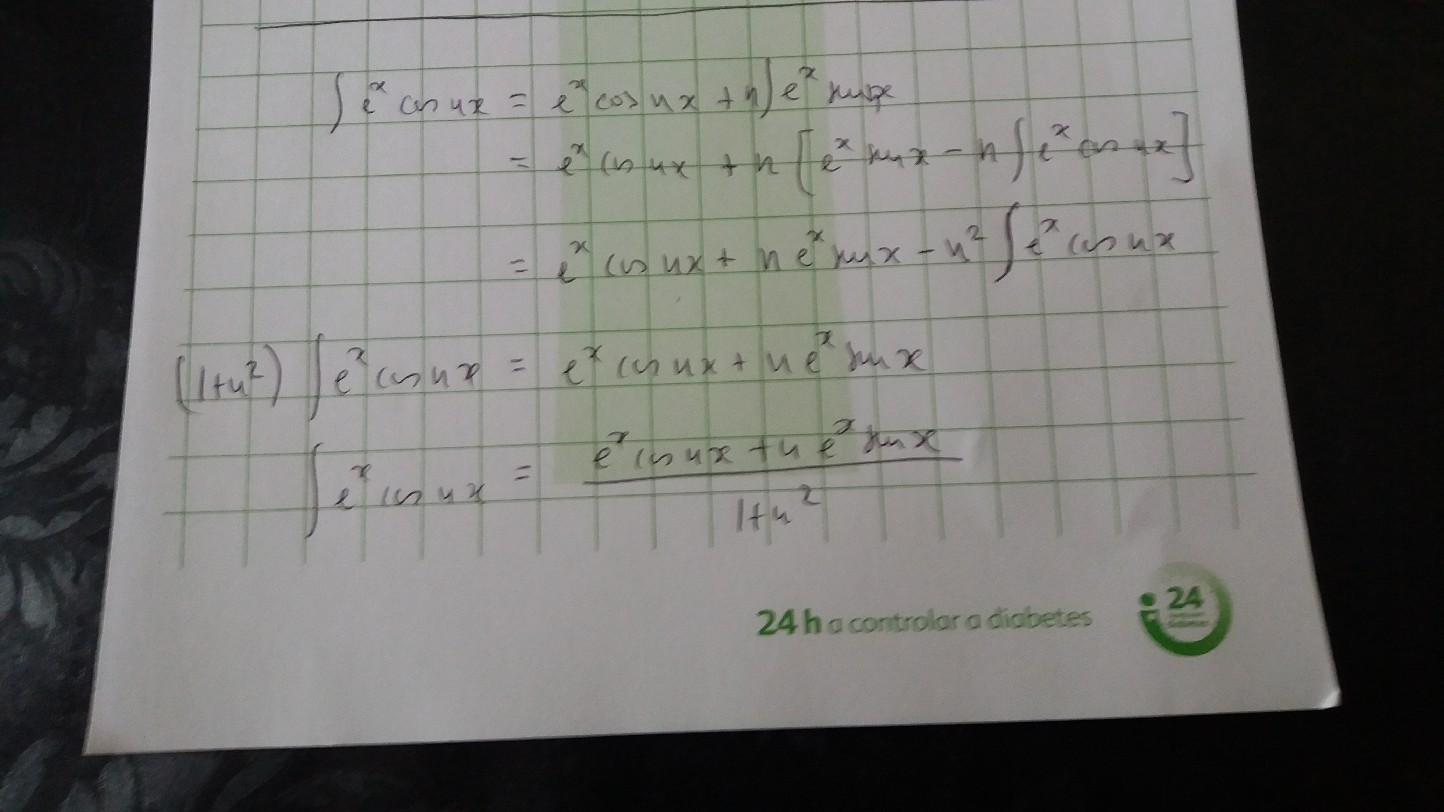 ∫ e^x cos nx = e^x cos nx + n ∫ e^x sin nx
= e^x cos nx + n [e^x sin nx − n ∫ e^x cos nx]
= e^x cos nx + n e^x sin nx − n² ∫ e^x cos nx
(1+n²) ∫ e^x cos nx = e^x cos nx + n e^x sin nx
∫ e^x cos nx = (e^x cos nx + n e^x sin nx) / (1+n²)
24 h a controlar a diabetes
24